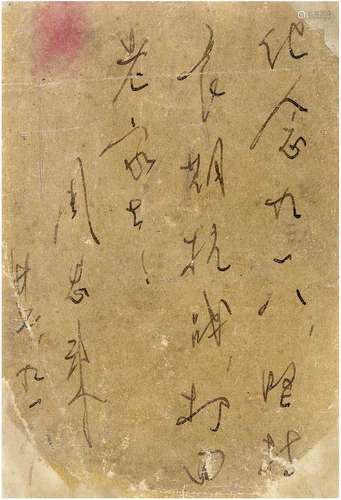 纪念九一八，坚持
长期抗战，打回
老家去！
周恩来
九一